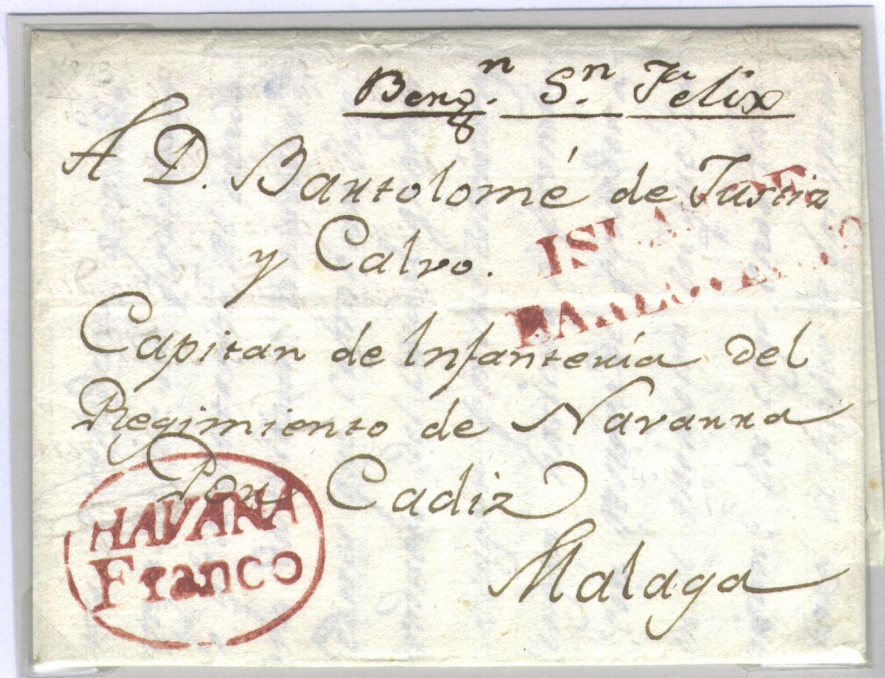 Berg.n Sn. Felix
A D. Bartolomé de Justiz
y Calvo.
ISLAS DE
BARLOVENTO
Capitan de Infantería del
Regimiento de Navarra
Por Cadiz
HAVANA
Franco
Malaga